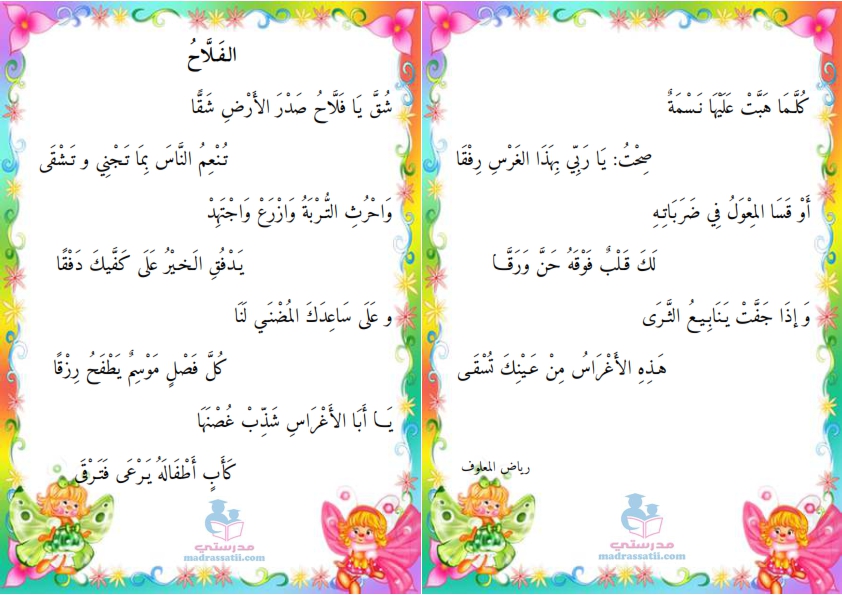 الفَلَّاحُ
شُقَّ يَا فَلَّاحُ صَدْرَ الأَرْضِ شَقًّا
تُنْعِمُ النَّاسَ بِمَا تَجْنِي و تَشْقَى
وَاحْرُثِ التُّرْبَةُ وَازْرَعْ وَاجْتَهِدْ
يَدْفُقِ الَخيْرُ عَلَى كَفَّيكَ دَفْقًا
و عَلَى سَاعِدَكَ المُضْنَي لَنَا
كُلَّ فَصْلٍ مَوْسِمٌ يَطْفَحُ رِزْقًا
يَا أَبَا الأَغْرَاسِ شَذِّبْ غُصْنَهَا
كَأَبٍ أَطْفَالَهُ يَرْعَى فَتَرْقَى
مدرستي
madrassatii.com
كُلَّمَا هَبَّتْ عَلَيْهَا نَسْمَةٌ
صِحْتُ: يَا رَبِّي بِهَذَا الغَرْسِ رِفْقَا
أَوْ قَسَا المِعْوَلُ فِي ضَرَبَاتِهِ
لَكَ قَلْبٌ فَوْقَهُ حَنَّ وَرَقَّا
وَإذَا جَفَّتْ يَنَابِيعُ الثَّرَى
هَذِهِ الأَغْرَاسُ مِنْ عَيْنِكَ تُسْقَى
رياض المعلوف
مدرستي
madrassatii.com